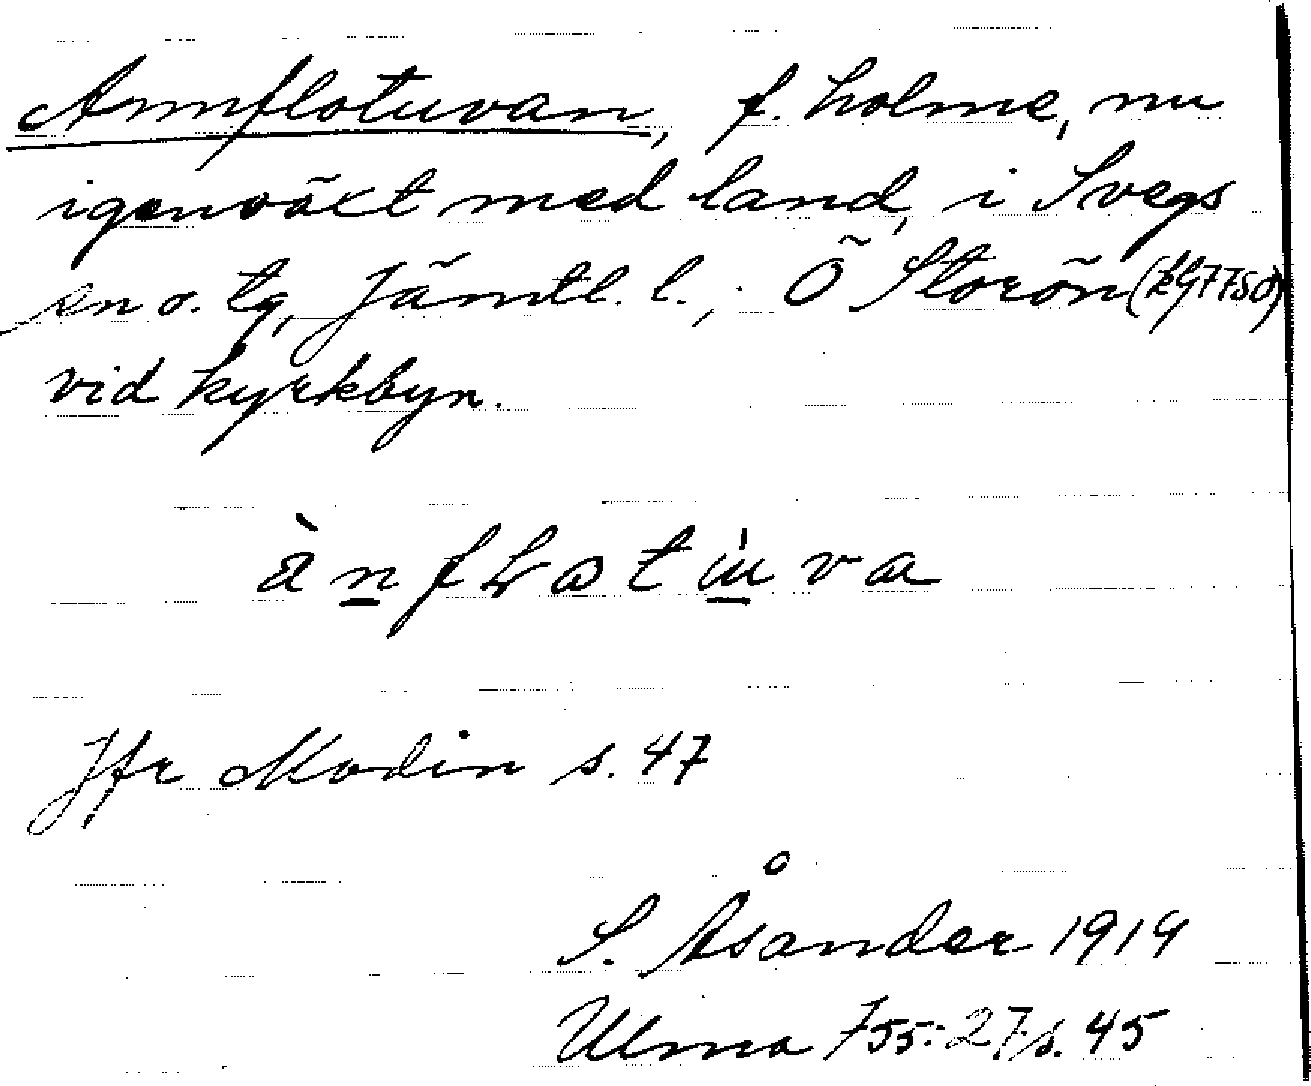 Annflotuvan, f. holme, nu
igenväxt med land, i Svegs
sn o. tg, Jämtl. l., Ö Storön
vid kyrkbyn.
ànfLotu̇va
Jfr Modin s. 47
S. Åsander 1919
Ulma 755:27 s. 45